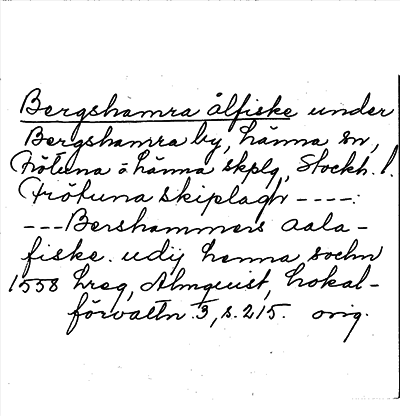 Bergshamra ålfiske under
Bergshamra by, Länna sn,
Frötuna o Länna skplg, Stockh. l.
Frötuna skiplagh ----:
---Bershammers aala-
fiske. udij Lenna sochn
1558 hreg, Almquist, Lokal-
förvaltn. 3, s. 215. orig.